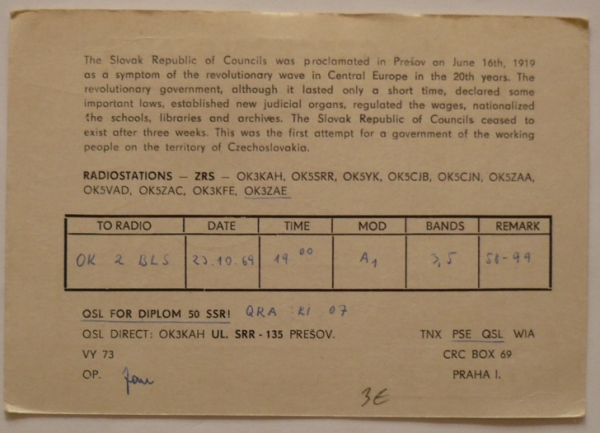 The Slovak Republic of Councils was proclamated in Prešov on June 16th, 1919
as a symptom of the revolutionary wave in Central Europe in the 20th years. The
revolutionary government, although it lasted only a short time, declared some
important laws, established new judicial organs, regulated the wages, nationalized
the schools, libraries and archives. The Slovak Republic of Councils ceased to
exist after three weeks. This was the first attempt for a government of the working
people on the territory of Czechoslovakia.
RADIOSTATIONS – ZRS – OK3KAH, OK5SRR, OK5YK, OK5CJB, OK5CJN, OK5ZAA,
OK5VAD, OK5ZAC, OK3KFE, OK3ZAE
TO RADIO DATE TIME MOD BANDS REMARK
OK 2 BLS 23.10.69 19 00 A1 3,5 58-99
QSL FOR DIPLOM 50 SSR! QRA KI 07
QSL DIRECT: OK3KAH UL. SRR - 135 PREŠOV. TNX PSE QSL WIA
VY 73 CRC BOX 69
OP. PRAHA I.
3€